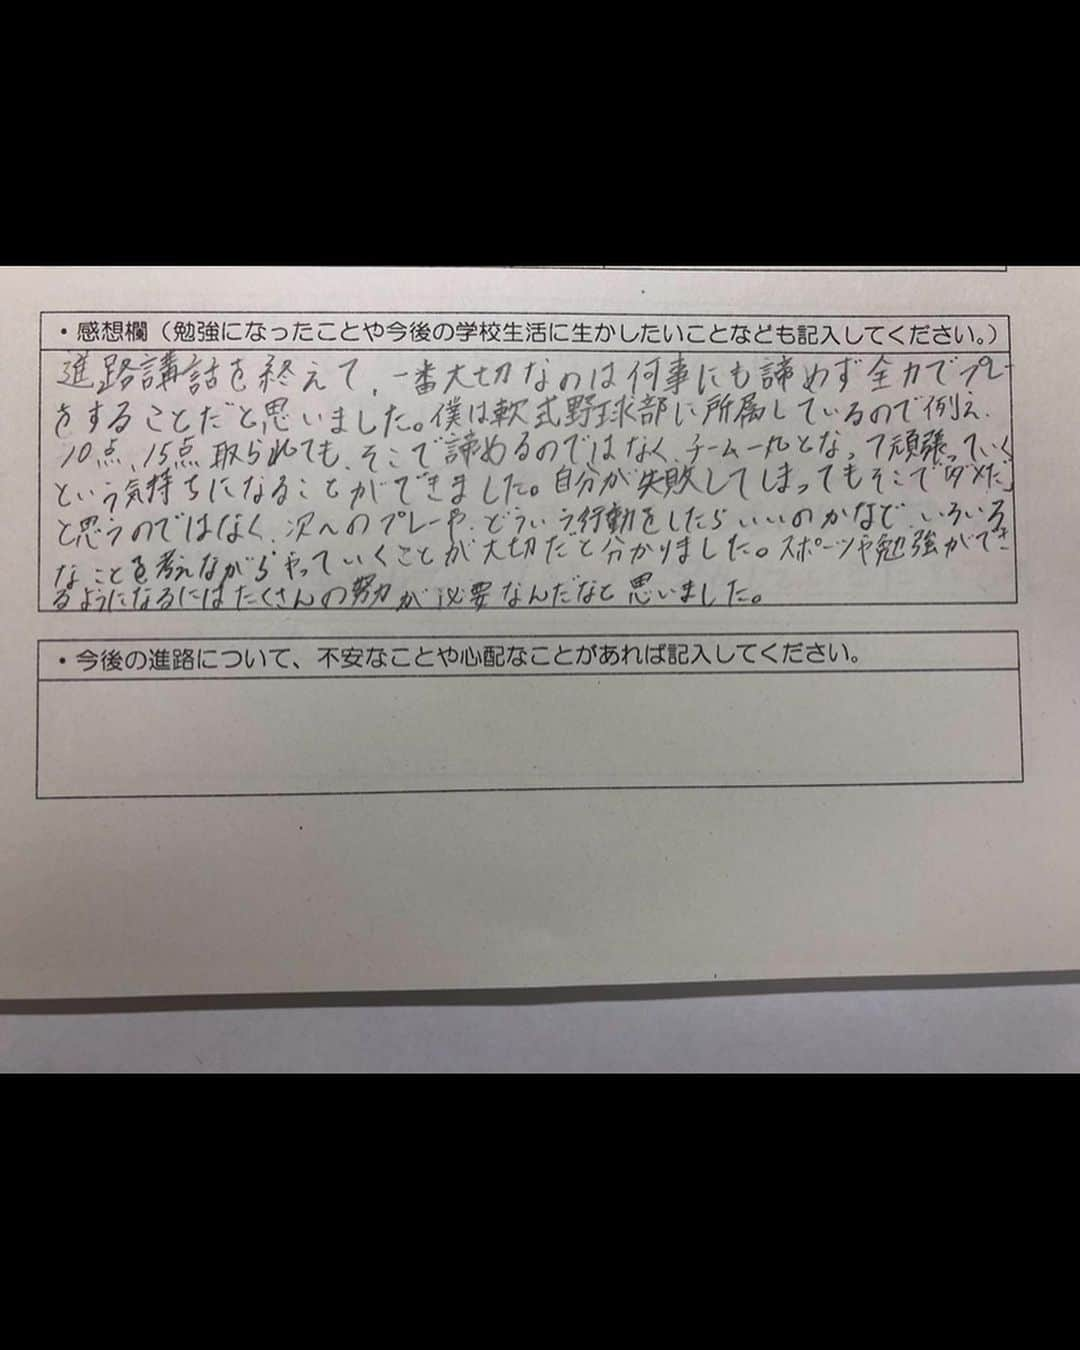 ・感想欄（勉強になったことや今後の学校生活に生かしたいことなども記入してください。）
進路講話を終えて、一番大切なのは何事にも諦めず全力でプレー
をすることだと思いました。僕は軟式野球部に所属しているので例え、
10点、15点取られても、そこで諦めるのではなく、チーム一丸となって頑張っていく
という気持ちになることができました。自分が失敗してしまってもそこで「ダメだ」
と思うのではなく、次へのプレーや、どういう行動をしたらいいのかなど、いろいろ
なことを考えながらやっていくことが大切だと分かりました。スポーツや勉強ができ
るようになるにはたくさんの努力が必要なんだなと思いました。
・今後の進路について、不安なことや心配なことがあれば記入してください。